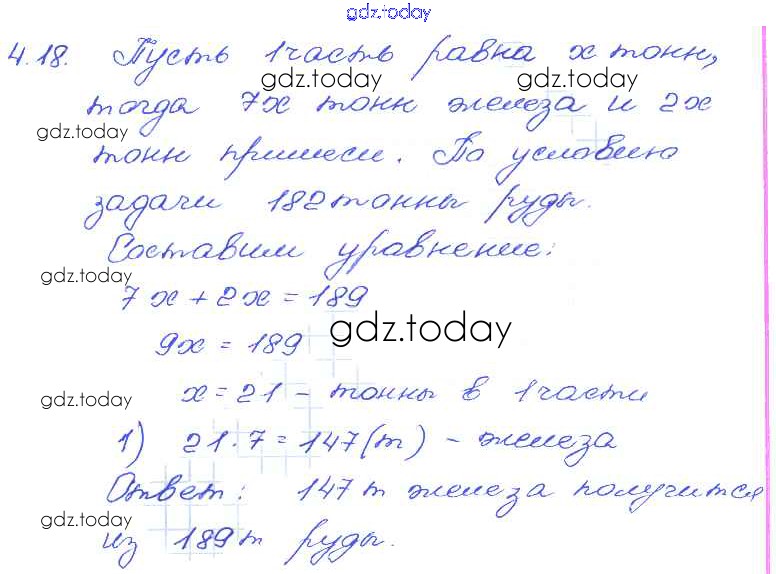 gdz.today
4.18. Пусть 1часть равна x тонн,
gdz.today gdz.today
тогда 7x тонн железа и 2x
gdz.today
тонн примеси. По условию
задачи 182тонны руды.
gdz.today
Составим уравнение:
gdz.today
7x + 2x = 189
gdz.today
9x = 189
x = 21 - тонны в 1части
gdz.today
1) 21·7 = 147(т) - железа
Ответ: 147т железа получится
gdz.today gdz.today
из 189т руды.